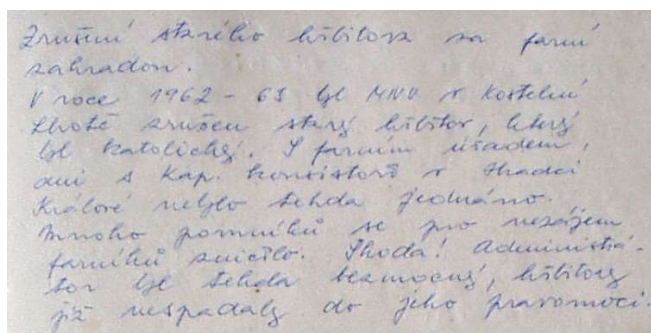 Zrušení starého hřbitova za farní
zahradou.
V roce 1962 - 63 byl MNV v Kostelní
Lhotě zrušen starý hřbitov, který
byl katolický. S farním úřadem,
ani s Kap. konsistoří v Hradci
Králové nebylo tehda jednáno.
Mnoho pomníků se pro nezájem
farníků zničilo. Škoda! Administrá-
tor byl tehda bezmocný, hřbitovy
již nespadaly do jeho pravomoci.